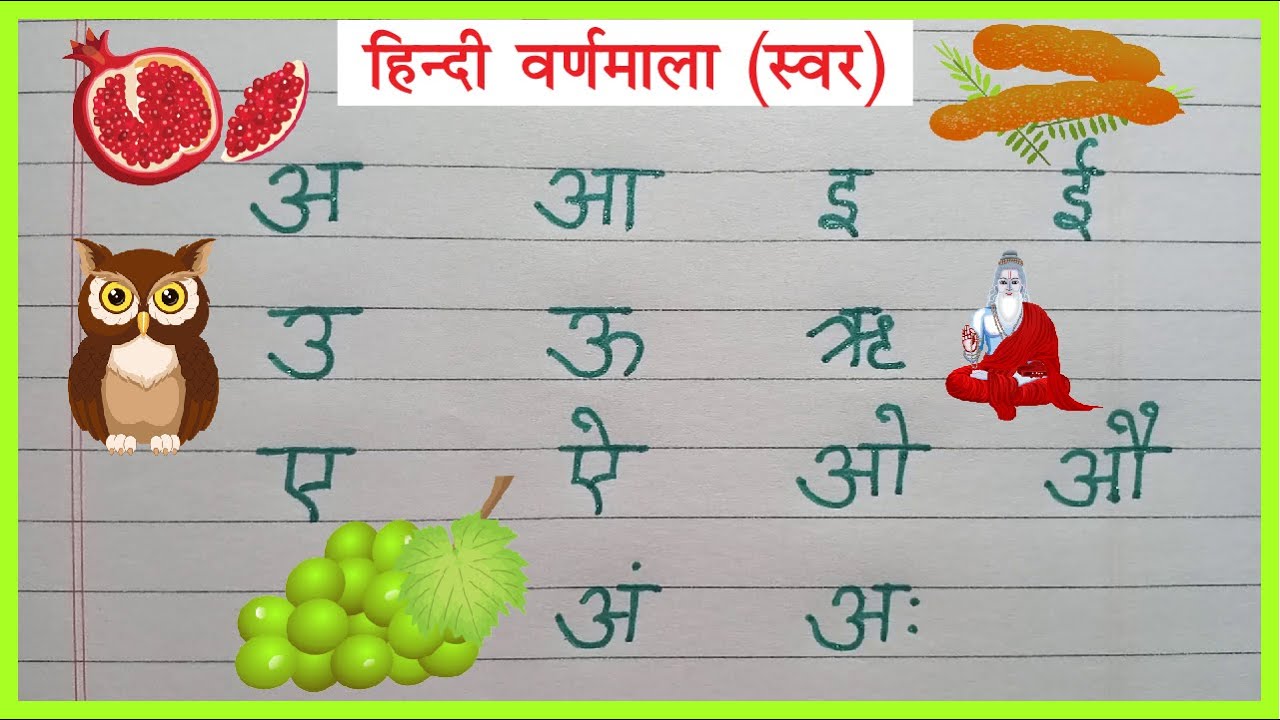 हिन्दी वर्णमाला (स्वर)
अ आ इ ई
उ ऊ ऋ
ए ऐ ओ औ
अं अः